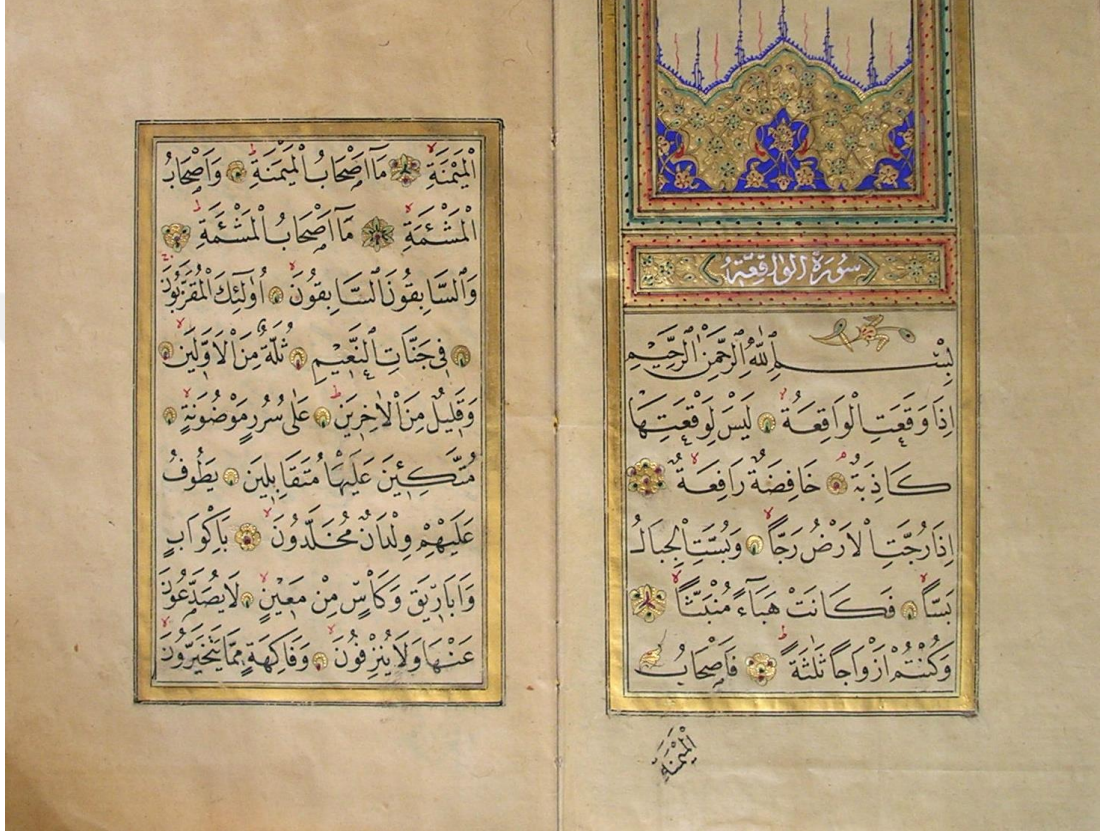 سُورَةُ الْوَاقِعَةِ
بِسْمِ اللّٰهِ الرَّحْمٰنِ الرَّحِيمِ
اِذَا وَقَعَتِ الْوَاقِعَةُ لَيْسَ لِوَقْعَتِهَا
كَاذِبَةٌ خَافِضَةٌ رَافِعَةٌ
اِذَا رُجَّتِ الْاَرْضُ رَجًّا وَبُسَّتِ الْجِبَالُ
بَسًّا فَكَانَتْ هَبَآءً مُنْبَثًّا
وَكُنْتُمْ اَزْوَاجًا ثَلٰثَةً فَاَصْحَابُ
الْمَيْمَنَةِ
الْمَيْمَنَةِ مَآ اَصْحَابُ الْمَيْمَنَةِ وَاَصْحَابُ
الْمَشْئَمَةِ مَآ اَصْحَابُ الْمَشْئَمَةِ
وَالسَّابِقُونَ السَّابِقُونَ اُولٰٓئِكَ الْمُقَرَّبُونَ
فِي جَنَّاتِ النَّعِيمِ ثُلَّةٌ مِنَ الْاَوَّلِينَ
وَقَلِيلٌ مِنَ الْاٰخِرِينَ عَلٰى سُرُرٍ مَوْضُونَةٍ
مُتَّكِئِينَ عَلَيْهَا مُتَقَابِلِينَ يَطُوفُ
عَلَيْهِمْ وِلْدَانٌ مُخَلَّدُونَ بِاَكْوَابٍ
وَاَبَارِيقَ وَكَاْسٍ مِنْ مَعِينٍ لَا يُصَدَّعُونَ
عَنْهَا وَلَا يُنْزِفُونَ وَفَاكِهَةٍ مِمَّا يَتَخَيَّرُونَ